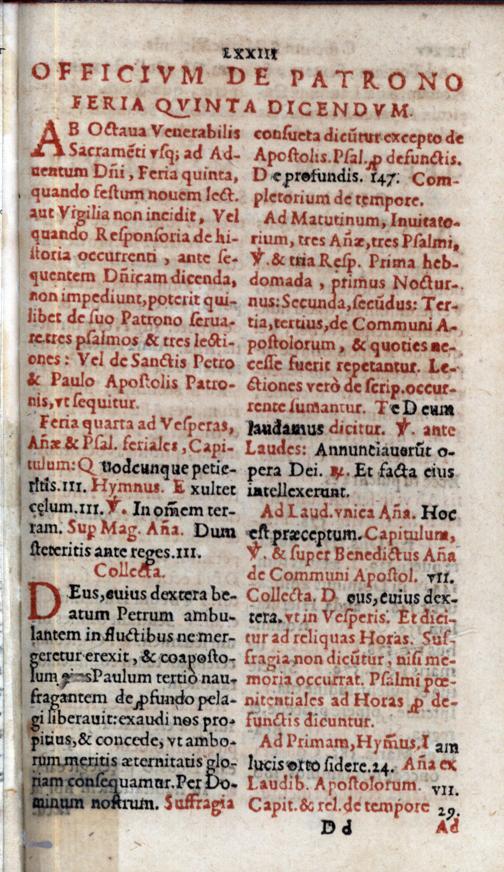 LXXIII
OFFICIVM DE PATRONO
FERIA QVINTA DICENDVM.
AB Octaua Venerabilis
Sacramẽti vsq; ad Ad-
uentum Dñi, Feria quinta,
quando festum nouem lect.
aut Vigilia non incidit, Vel
quando Responsoria de hi-
storia occurrenti, ante se-
quentem Dñicam dicenda,
non impediunt, poterit qui-
libet de suo Patrono serua-
re tres psalmos & tres lecti-
ones: Vel de Sanctis Petro
& Paulo Apostolis Patro-
nis, vt sequitur.
Feria quarta ad Vesperas,
Añæ & Psal. feriales, Capi-
tulum: Q uodcunque petie-
ritis. III. Hymnus. E xultet
cęlum. III. ℣. In omẽm ter-
ram. Sup Mag. Aña. Dum
steteritis ante reges. III.
Collecta.
DEus, cuius dextera be-
atum Petrum ambu-
lantem in fluctibus ne mer-
geretur erexit, & coaposto-
lum Paulum tertiò nau-
fragantem de ꝓfundo pela-
gi liberauit: exaudi nos pro-
pitius, & concede, vt ambo-
rum meritis æternitatis glo-
riam consequamur. Per Do-
minum nostrum. Suffragia
consueta dicũtur excepto de
Apostolis. Psal. ꝓ defunctis.
D e profundis. 147. Com-
pletorium de tempore.
Ad Matutinum, Inuitato-
rium, tres Añæ, tres Psalmi,
℣. & tria Resp. Prima heb-
domada, primus Noctur-
nus: Secunda, secũdus: Ter-
tia, tertius, de Communi A-
postolorum, & quoties ne-
cesse fuerit repetantur. Le-
ctiones verò de scrip. occur-
rente sumantur. Te Deum
laudamus dicitur. ℣. ante
Laudes: Annunciauerũt o-
pera Dei. ℟. Et facta eius
intellexerunt.
Ad Laud. vnica Aña. Hoc
est præceptum. Capitulum,
℣. & super Benedictus Aña
de Communi Apostol. VII.
Collecta. D eus, cuius dex-
tera. vt in Vesperis. Et dici-
tur ad reliquas Horas. Suf-
fragia non dicũtur, nisi me-
moria occurrat. Psalmi pœ-
nitentiales ad Horas ꝓ de-
functis dicuntur.
Ad Primam, Hym̃us. I am
lucis orto sidere. 24. Aña ex
Laudib. Apostolorum. VII.
Capit. & rel. de tempore 29.
D d Ad